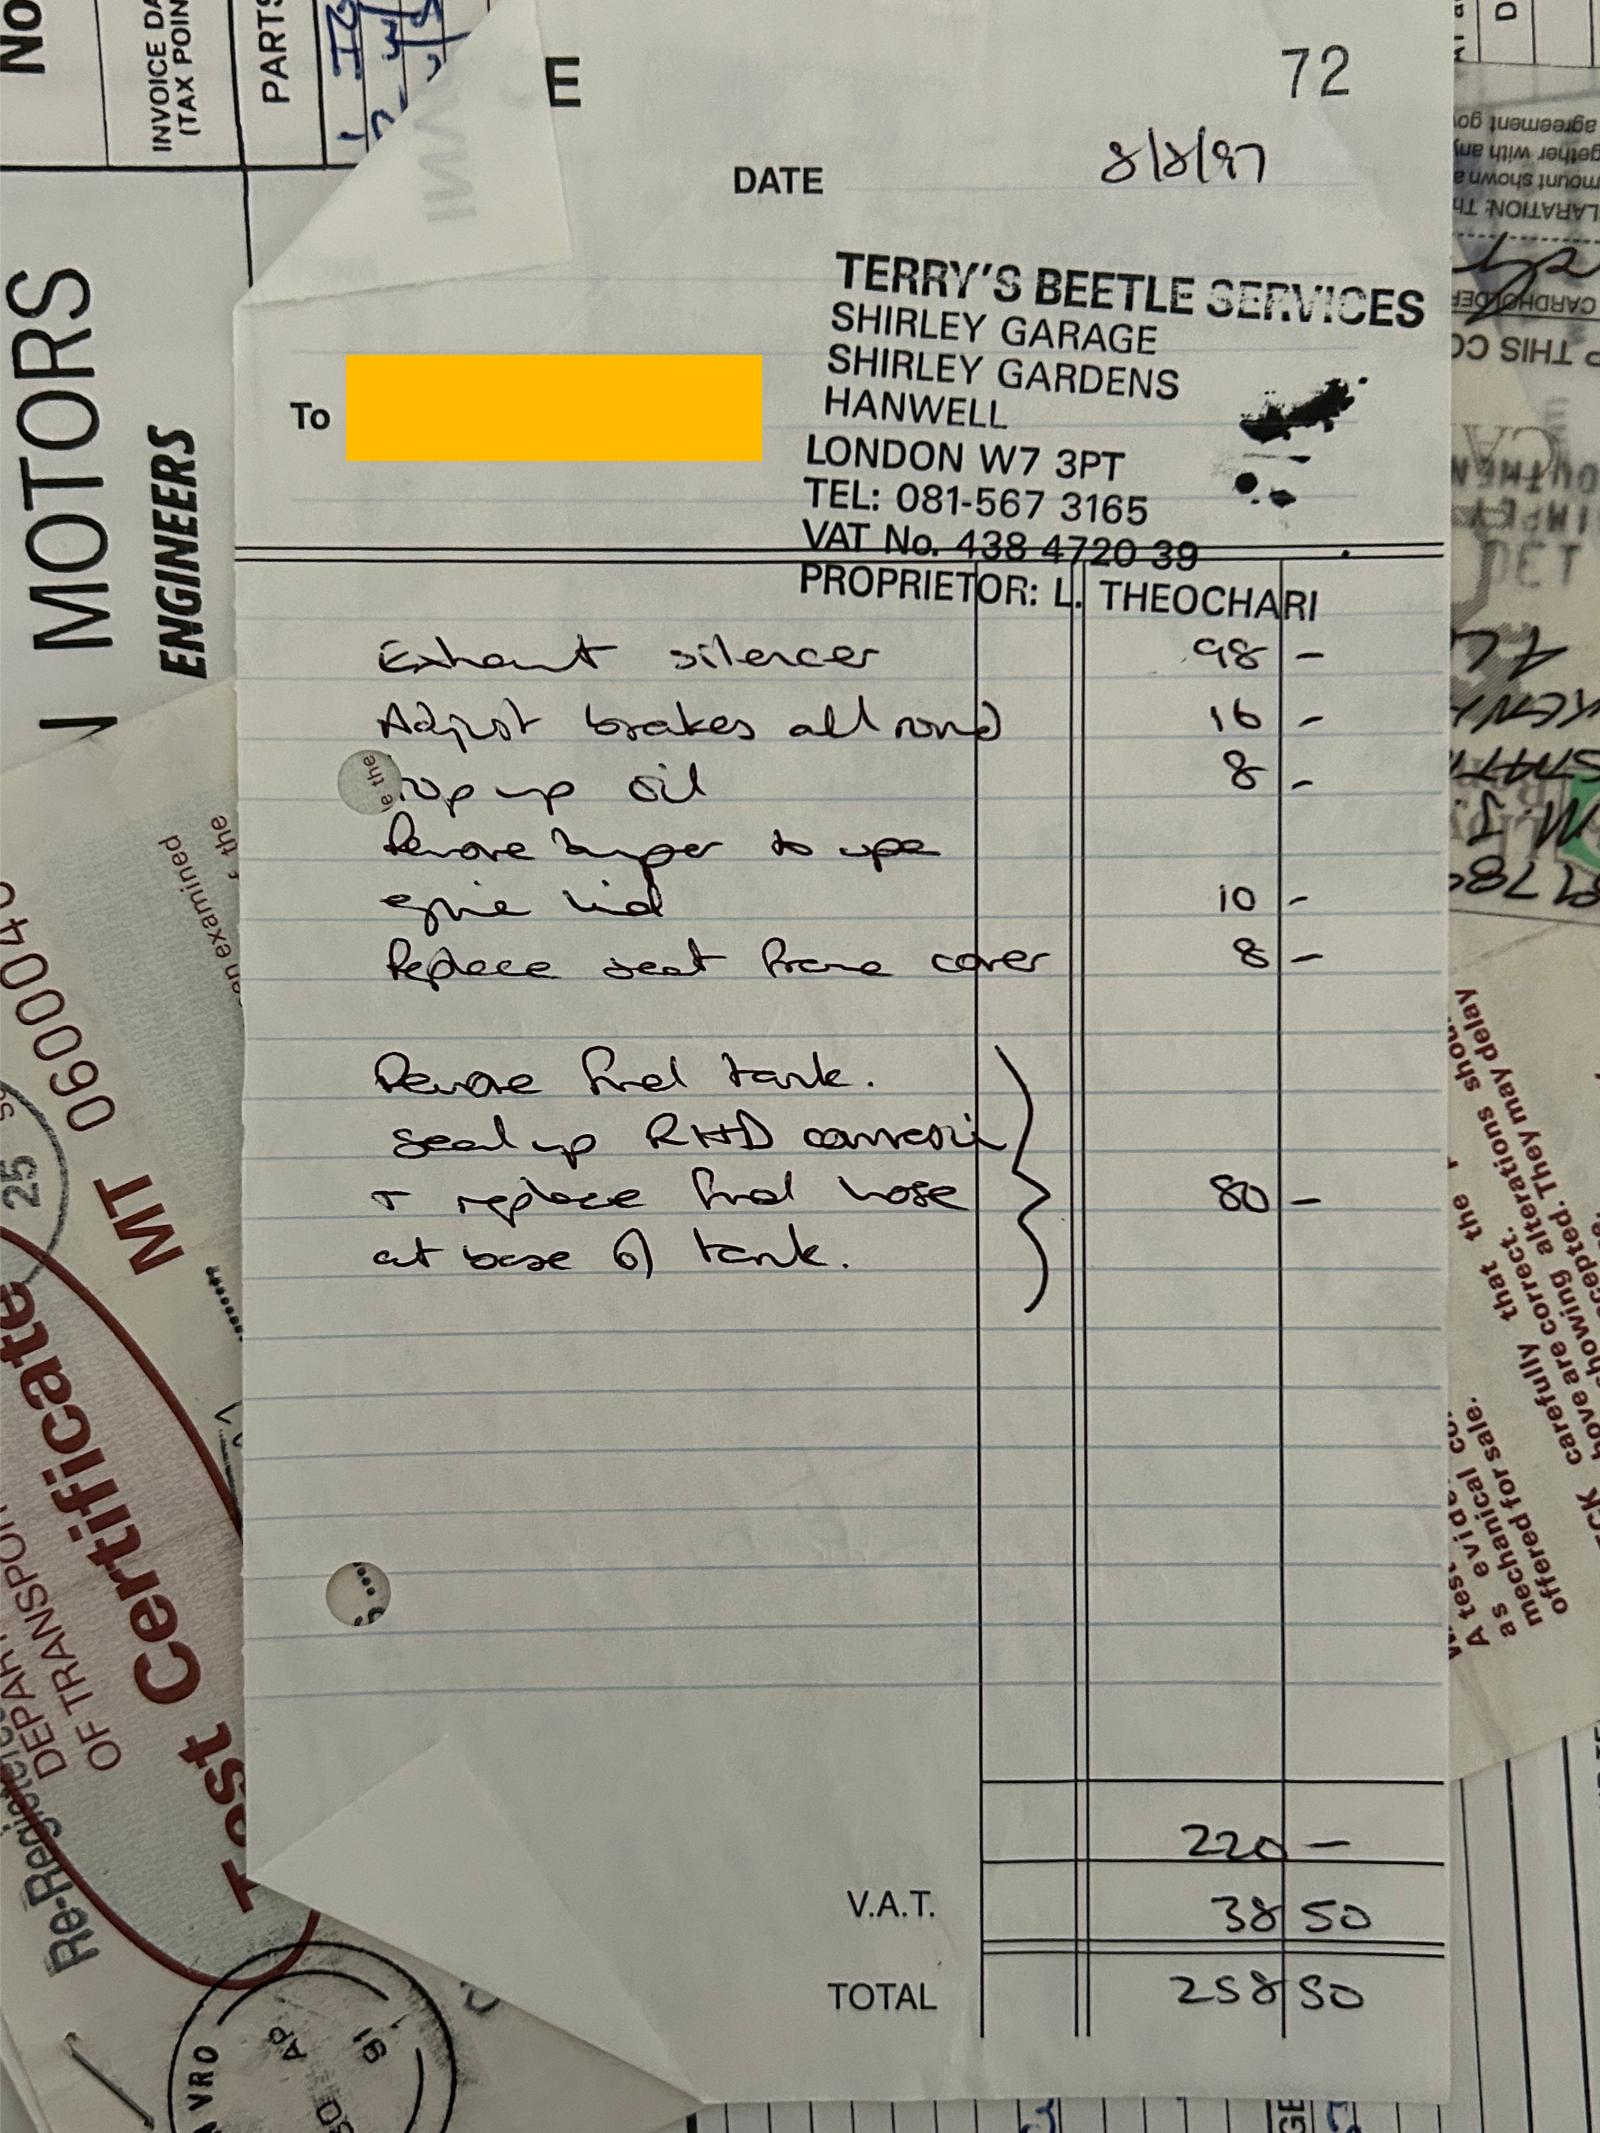 No
INVOICE DA
(TAX POIN
PARTS
E
72
DATE 8/8/97
TERRY'S BEETLE SERVICES
SHIRLEY GARAGE
SHIRLEY GARDENS
HANWELL
LONDON W7 3PT
TEL: 081-567 3165
VAT No. 438 4720 39
PROPRIETOR: L. THEOCHARI
To
Exhaust silencer 98 -
Adjust brakes all round 16 -
Top up oil 8 -
Remove bumper to open
engine lid 10 -
Replace seat frame cover 8 -
Remove fuel tank.
seal up RHD conversion
+ replace fuel hose 80 -
at base of tank.
220 -
V.A.T. 38 50
TOTAL 258 50
MOTORS
ENGINEERS
en examined
the
le the
0600040
MT
25
Test Certificate
DEPAR
OF TRANSPOR
Re-Registere
VRO
AP
91
agreement gov
gether with any
mount shown a
LARATION: Th
CARDHOLDER
P THIS CO
carefully that the
above are correct.
showing alterations shou
accepted. They may delay
A test
as evide
mechanical co
offered for sale.